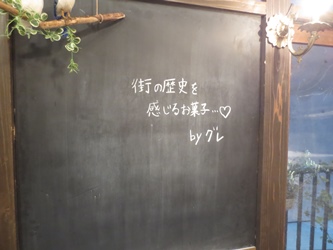 街の歴史を
感じるお菓子…♡
by グレ